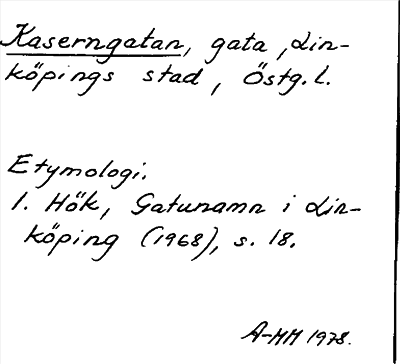 Kaserngatan, gata, Lin-
köpings stad, Östg. l.
Etymologi.
1. Hök, Gatunamn i Lin-
köping (1968), s. 18.
A-MM 1978.